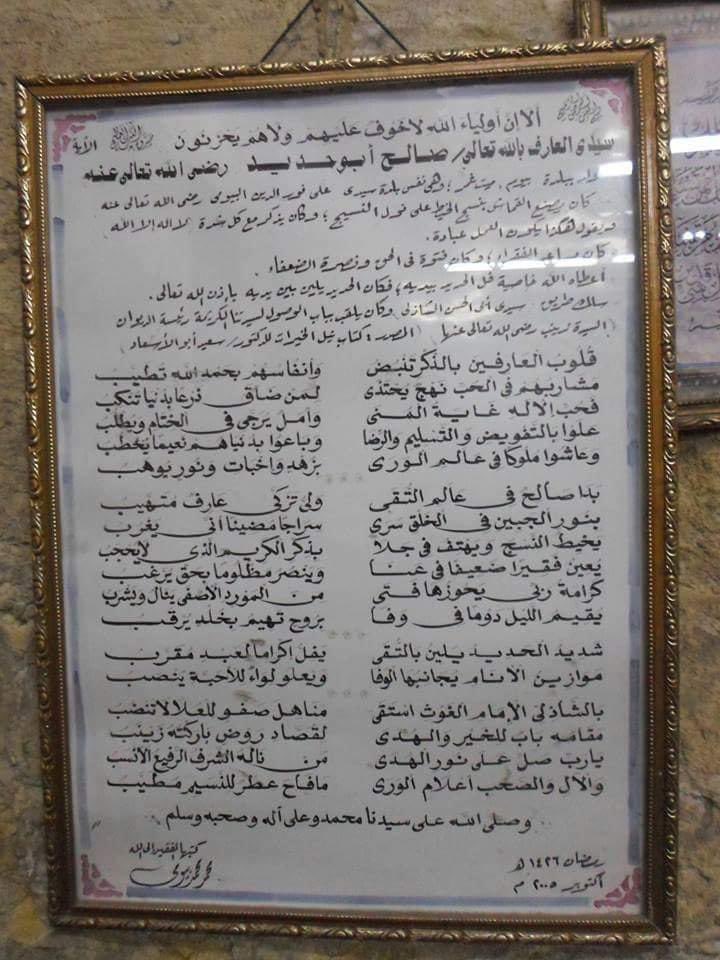 ألا إن أولياء الله لا خوف عليهم ولا هم يحزنون الآية
سيدى العارف بالله تعالى/ صالح أبو حديد رضى الله تعالى عنه
ولد ببلدة بيوم. ميت غمر ؛ وهى نفس بلدة سيدى على نور الدين البيومى رضى الله تعالى عنه
كان يصنع القماش بنسج الخيط على نول النسيج ؛ وكان يذكر مع كل شدة لا اله إلا الله
ويقول هكذا يكون العمل عبادة.
كان مساعد الفقراء ؛ وكان فتوة فى الحق ونصرة الضعفاء.
أعطاه الله خاصية فل الحديد بيديه ؛ فكان الحديد يلين بين يديه بإذن الله تعالى.
سلك طريق سيدى أبى الحسن الشاذلى وكان يلقب بباب الوصول لسيدتنا الكريمة رئيسة الديوان
السيدة زينب رضى الله تعالى عنها المصدر: كتاب نيل الخيرات للدكتور/ سعيد أبو الأسعاد
قلوب العارفين بالذكر تنبض وأنفاسهم بحمد الله تطيب
مشاربهم فى الحب نهج يحتذى لمن ضاق ذرعا بدنيا تنكب
فحب الإله غاية المنى وأمل يرجى فى الختام ويطلب
علوا بالتفويض والتسليم والرضا وباعوا بدنياهم نعيما يخطب
وعاشوا ملوكا فى عالم الورى بزهد وإخبات ونور يوهب
بدا صالح فى عالم التقى ولى تزكى عارف متهيب
بنور الجبين فى الخلق سرى سراجا مضيئا أنى يغرب
يخيط النسج ويهتف فى جلا بذكر الكريم الذى لا يحجب
يعين فقيرا ضعيفا فى عنا وينصر مظلوما بحق يرغب
كرامة ربى يحوزها فتى من المورد الأصفى ينال ويشرب
يقيم الليل دوما فى وفا بروح تهيم بخلد يرقب
شديد الحديد يلين بالتقى يفل إكراما لعبد مقرب
موازين الأنام يجانبها الوفا ويعلو لواء للأحبة ينصب
بالشاذلى الإمام الغوث استقى مناهل صفو للعلا لا تنضب
مقامه باب للخير والهدى لقصاد روض باركته زينب
يارب صل على نور الهدى من ناله الشرف الرفيع الأنسب
والآل والصحب أعلام الورى ما فاح عطر للنسيم مطيب
وصلى الله على سيدنا محمد وعلى آله وصحبه وسلم
رمضان ١٤٢٦ هـ كتبها الفقير إلى الله
أكتوبر ٢٠٠٥ م